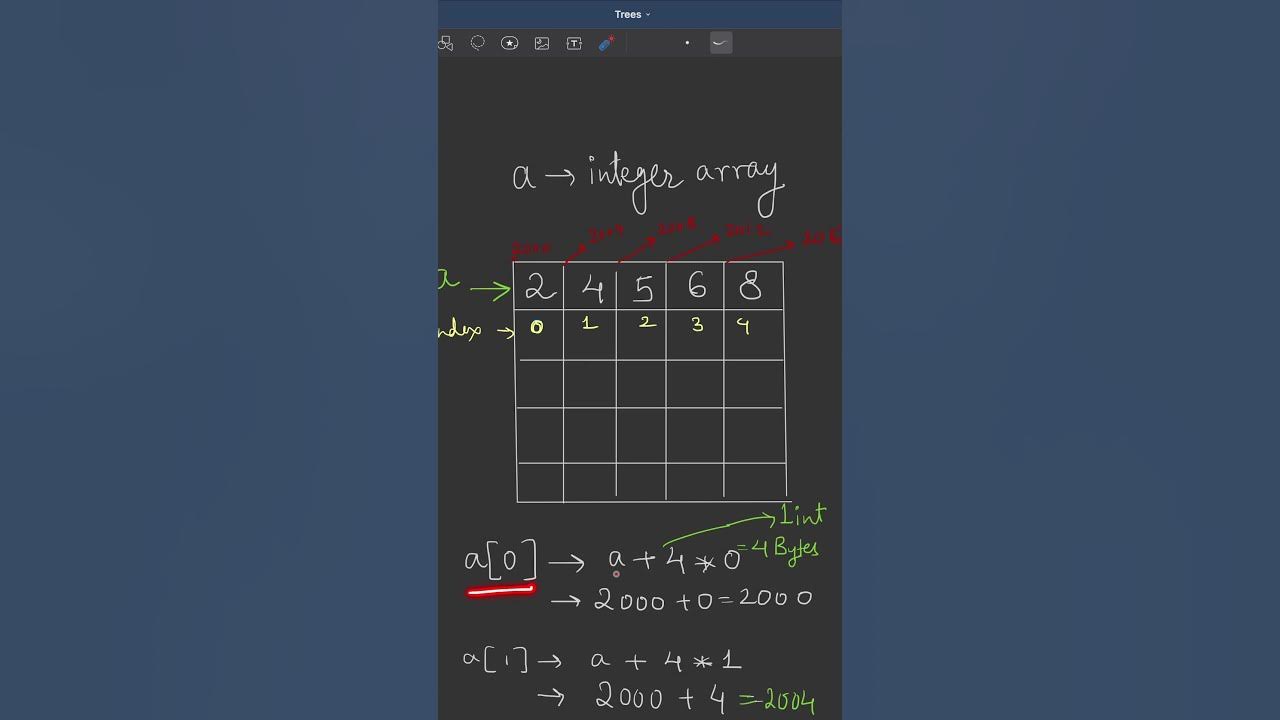 Trees
a → integer array
2000 2004 2008 2012
a → 2 4 5 6 8
ndex → 0 1 2 3 4
1 int
a[0] → a + 4 * 0 = 4 Bytes
→ 2000 + 0 = 2000
a[1] → a + 4 * 1
→ 2000 + 4 = 2004